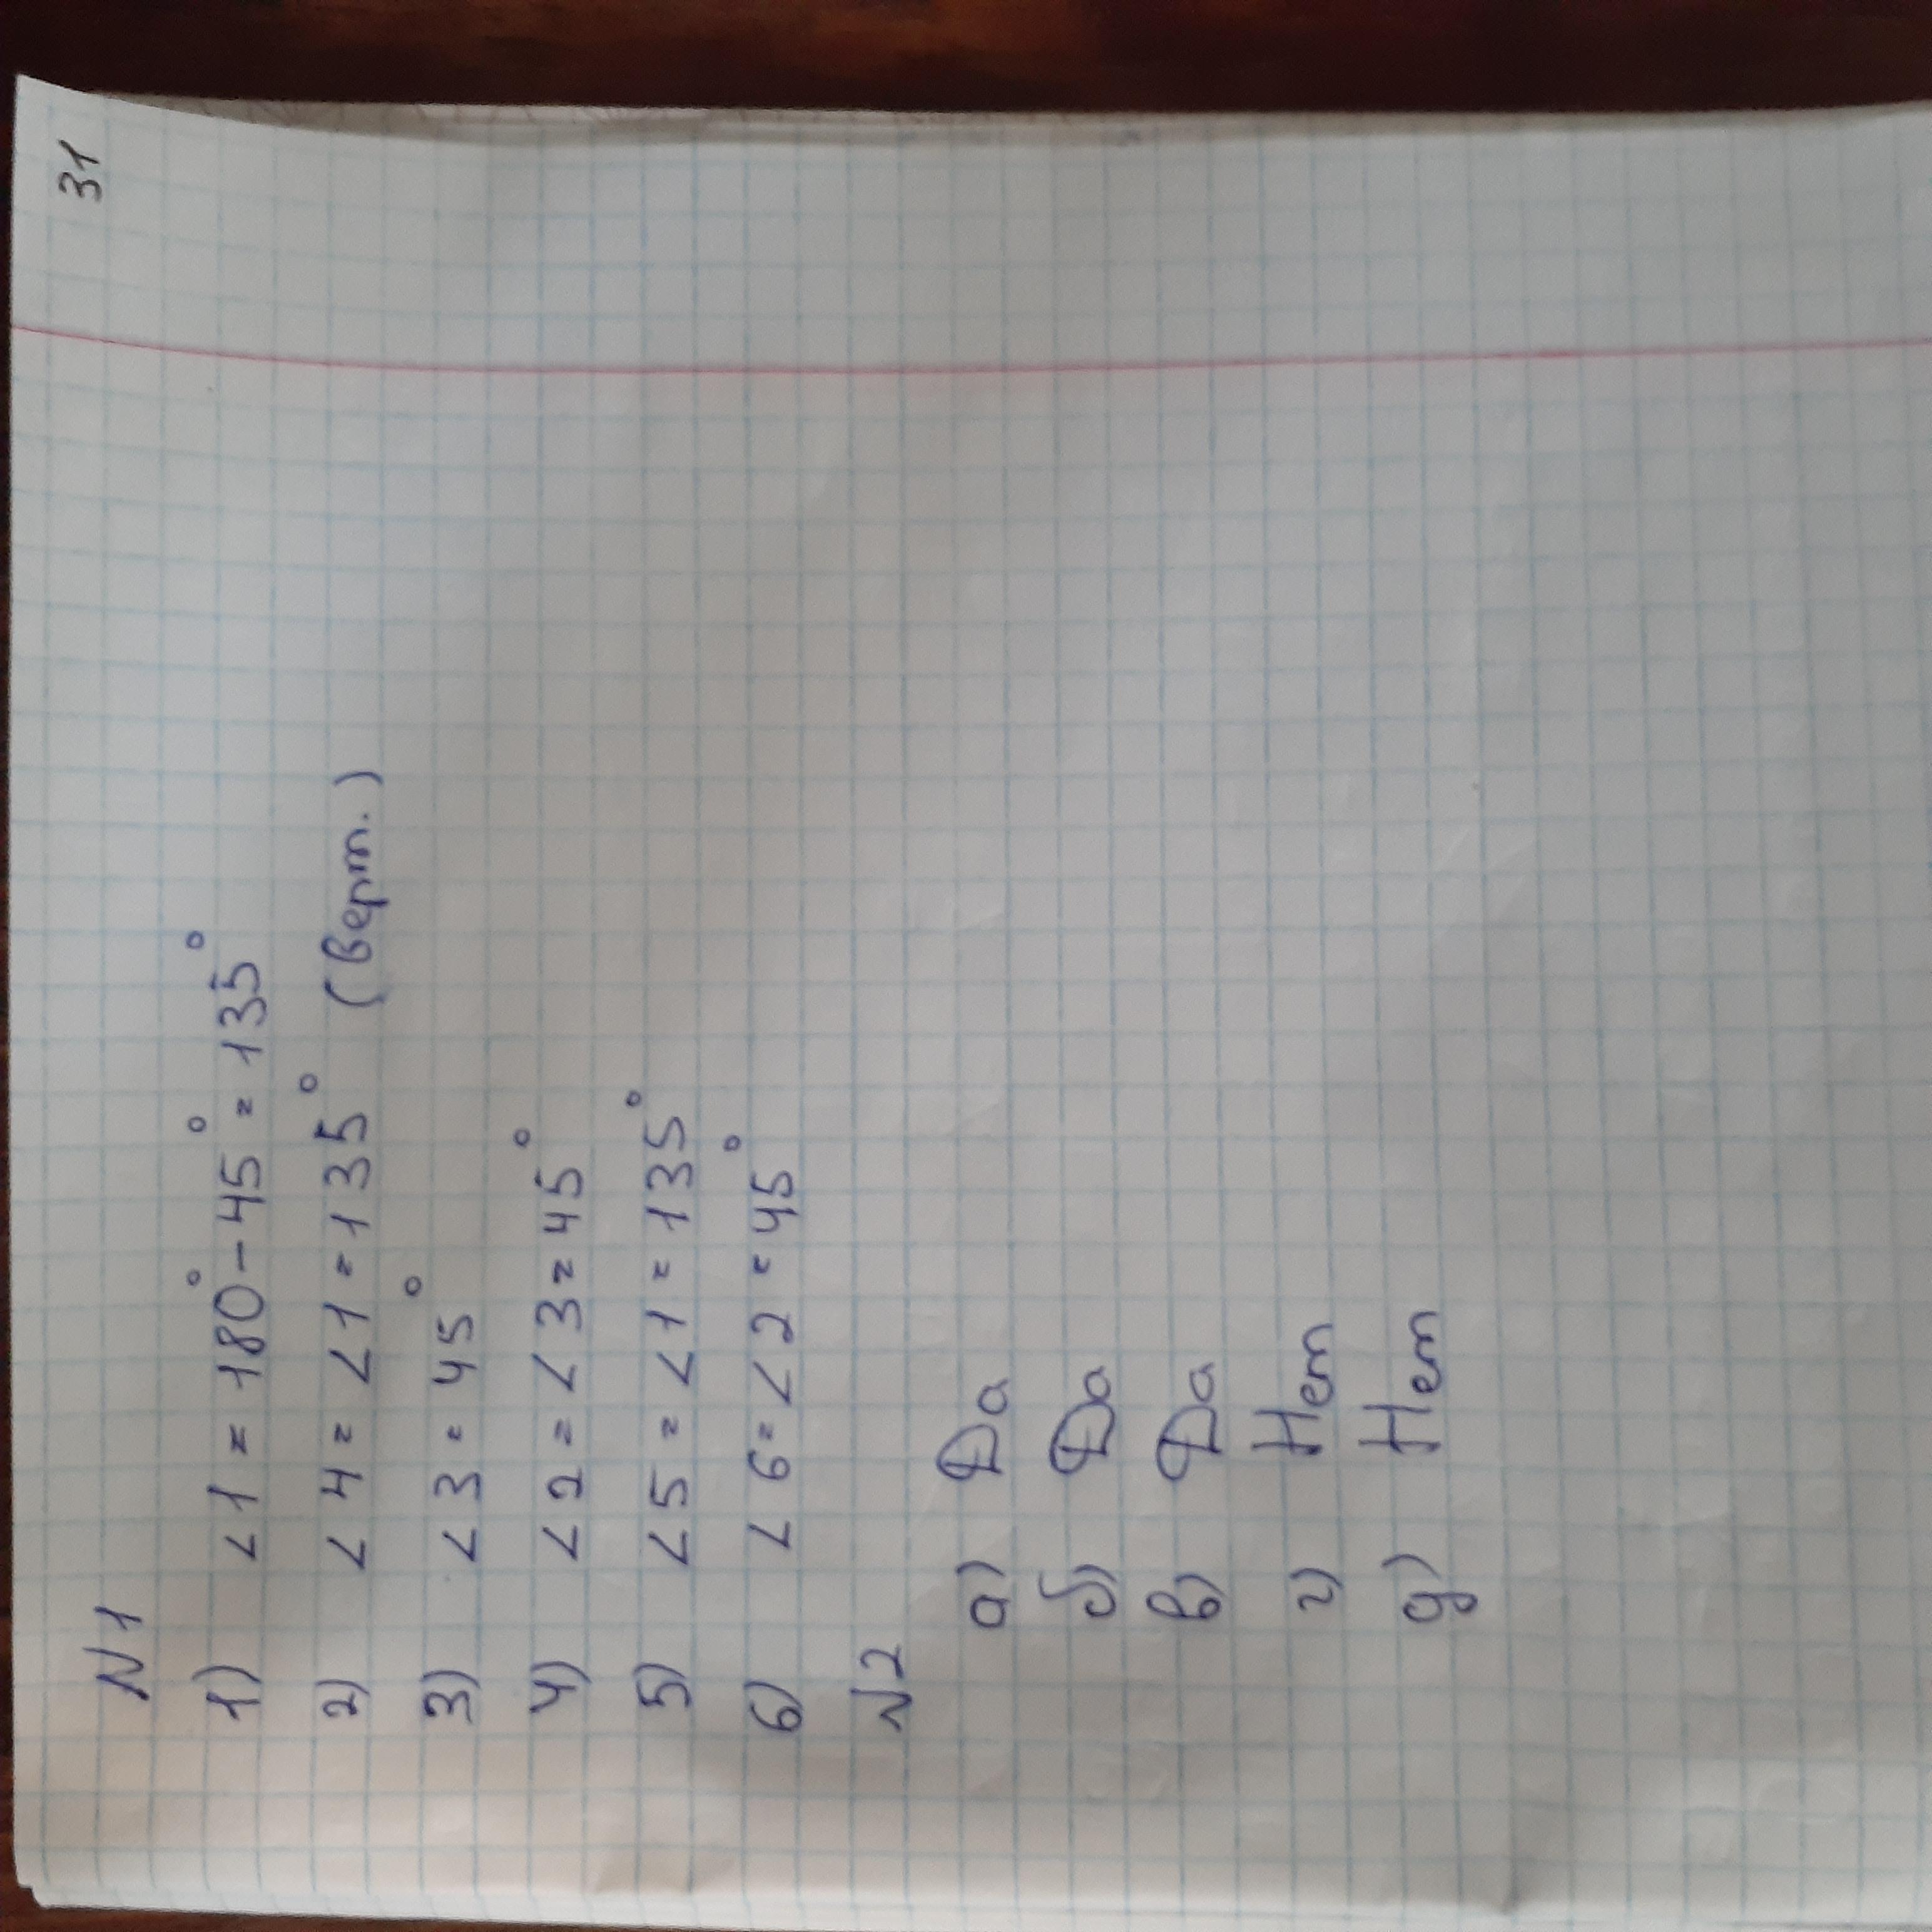 31
N1
1) <1 = 180° - 45° = 135°
2) <4 = <1 = 135° (верт.)
3) <3 = 45°
4) <2 = <3 = 45°
5) <5 = <1 = 135°
6) <6 = <2 = 45°
N2
а) Да
б) Да
в) Да
г) Нет
д) Нет